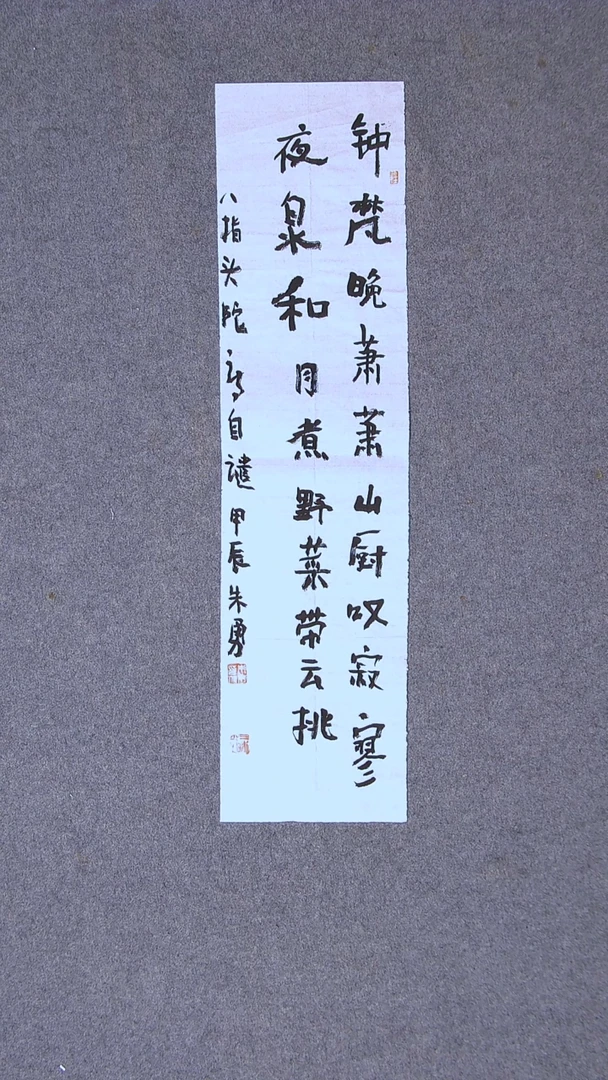 钟梵晚萧萧山厨叹寂寥
夜泉和月煮野菜带云挑
八指头陀 自谴甲辰朱勇